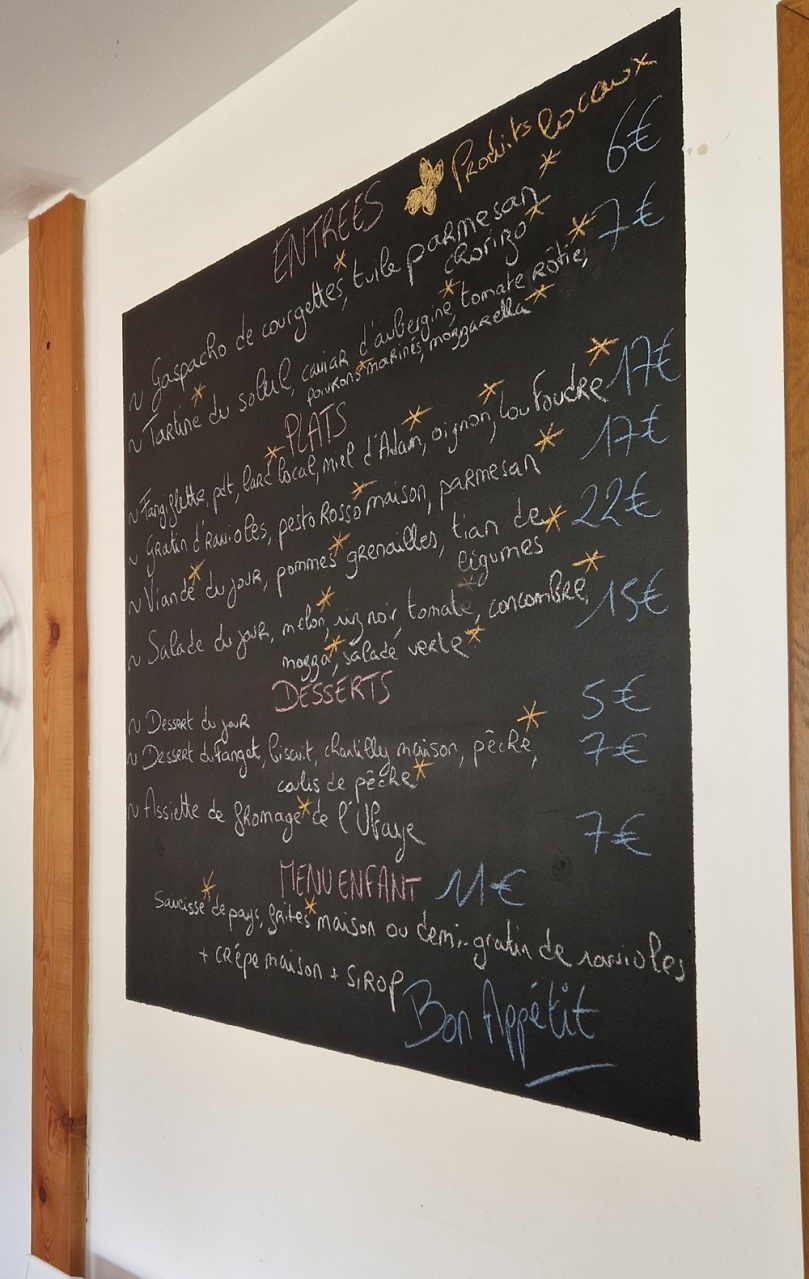 Produits locaux *
ENTREES
~ Gaspacho de courgettes, tuile parmesan 6€
chorizo
~ Tartine du soleil, caviar d'aubergine, tomate rôtie, 7€
poivrons marinés, mozzarella
PLATS
~ Tangiflette, pdt, lard local, miel d'Adam, oignon, lou Foudre 17€
~ Gratin d'ravioles, pesto Rosso maison, parmesan 17€
~ Viande du jour, pommes grenailles, tian de 22€
légumes
~ Salade du jour, melon, riz noir, tomate, concombre, 15€
mozza, salade verte
DESSERTS
~ Dessert du jour 5€
~ Dessert du Fanget, biscuit, chantilly maison, pêche, 7€
coulis de pêche
~ Assiette de fromage de l'Ubaye 7€
MENU ENFANT 11€
Saucisse de pays, frites maison ou demi-gratin de ravioles
+ crêpe maison + SIROP
Bon Appétit